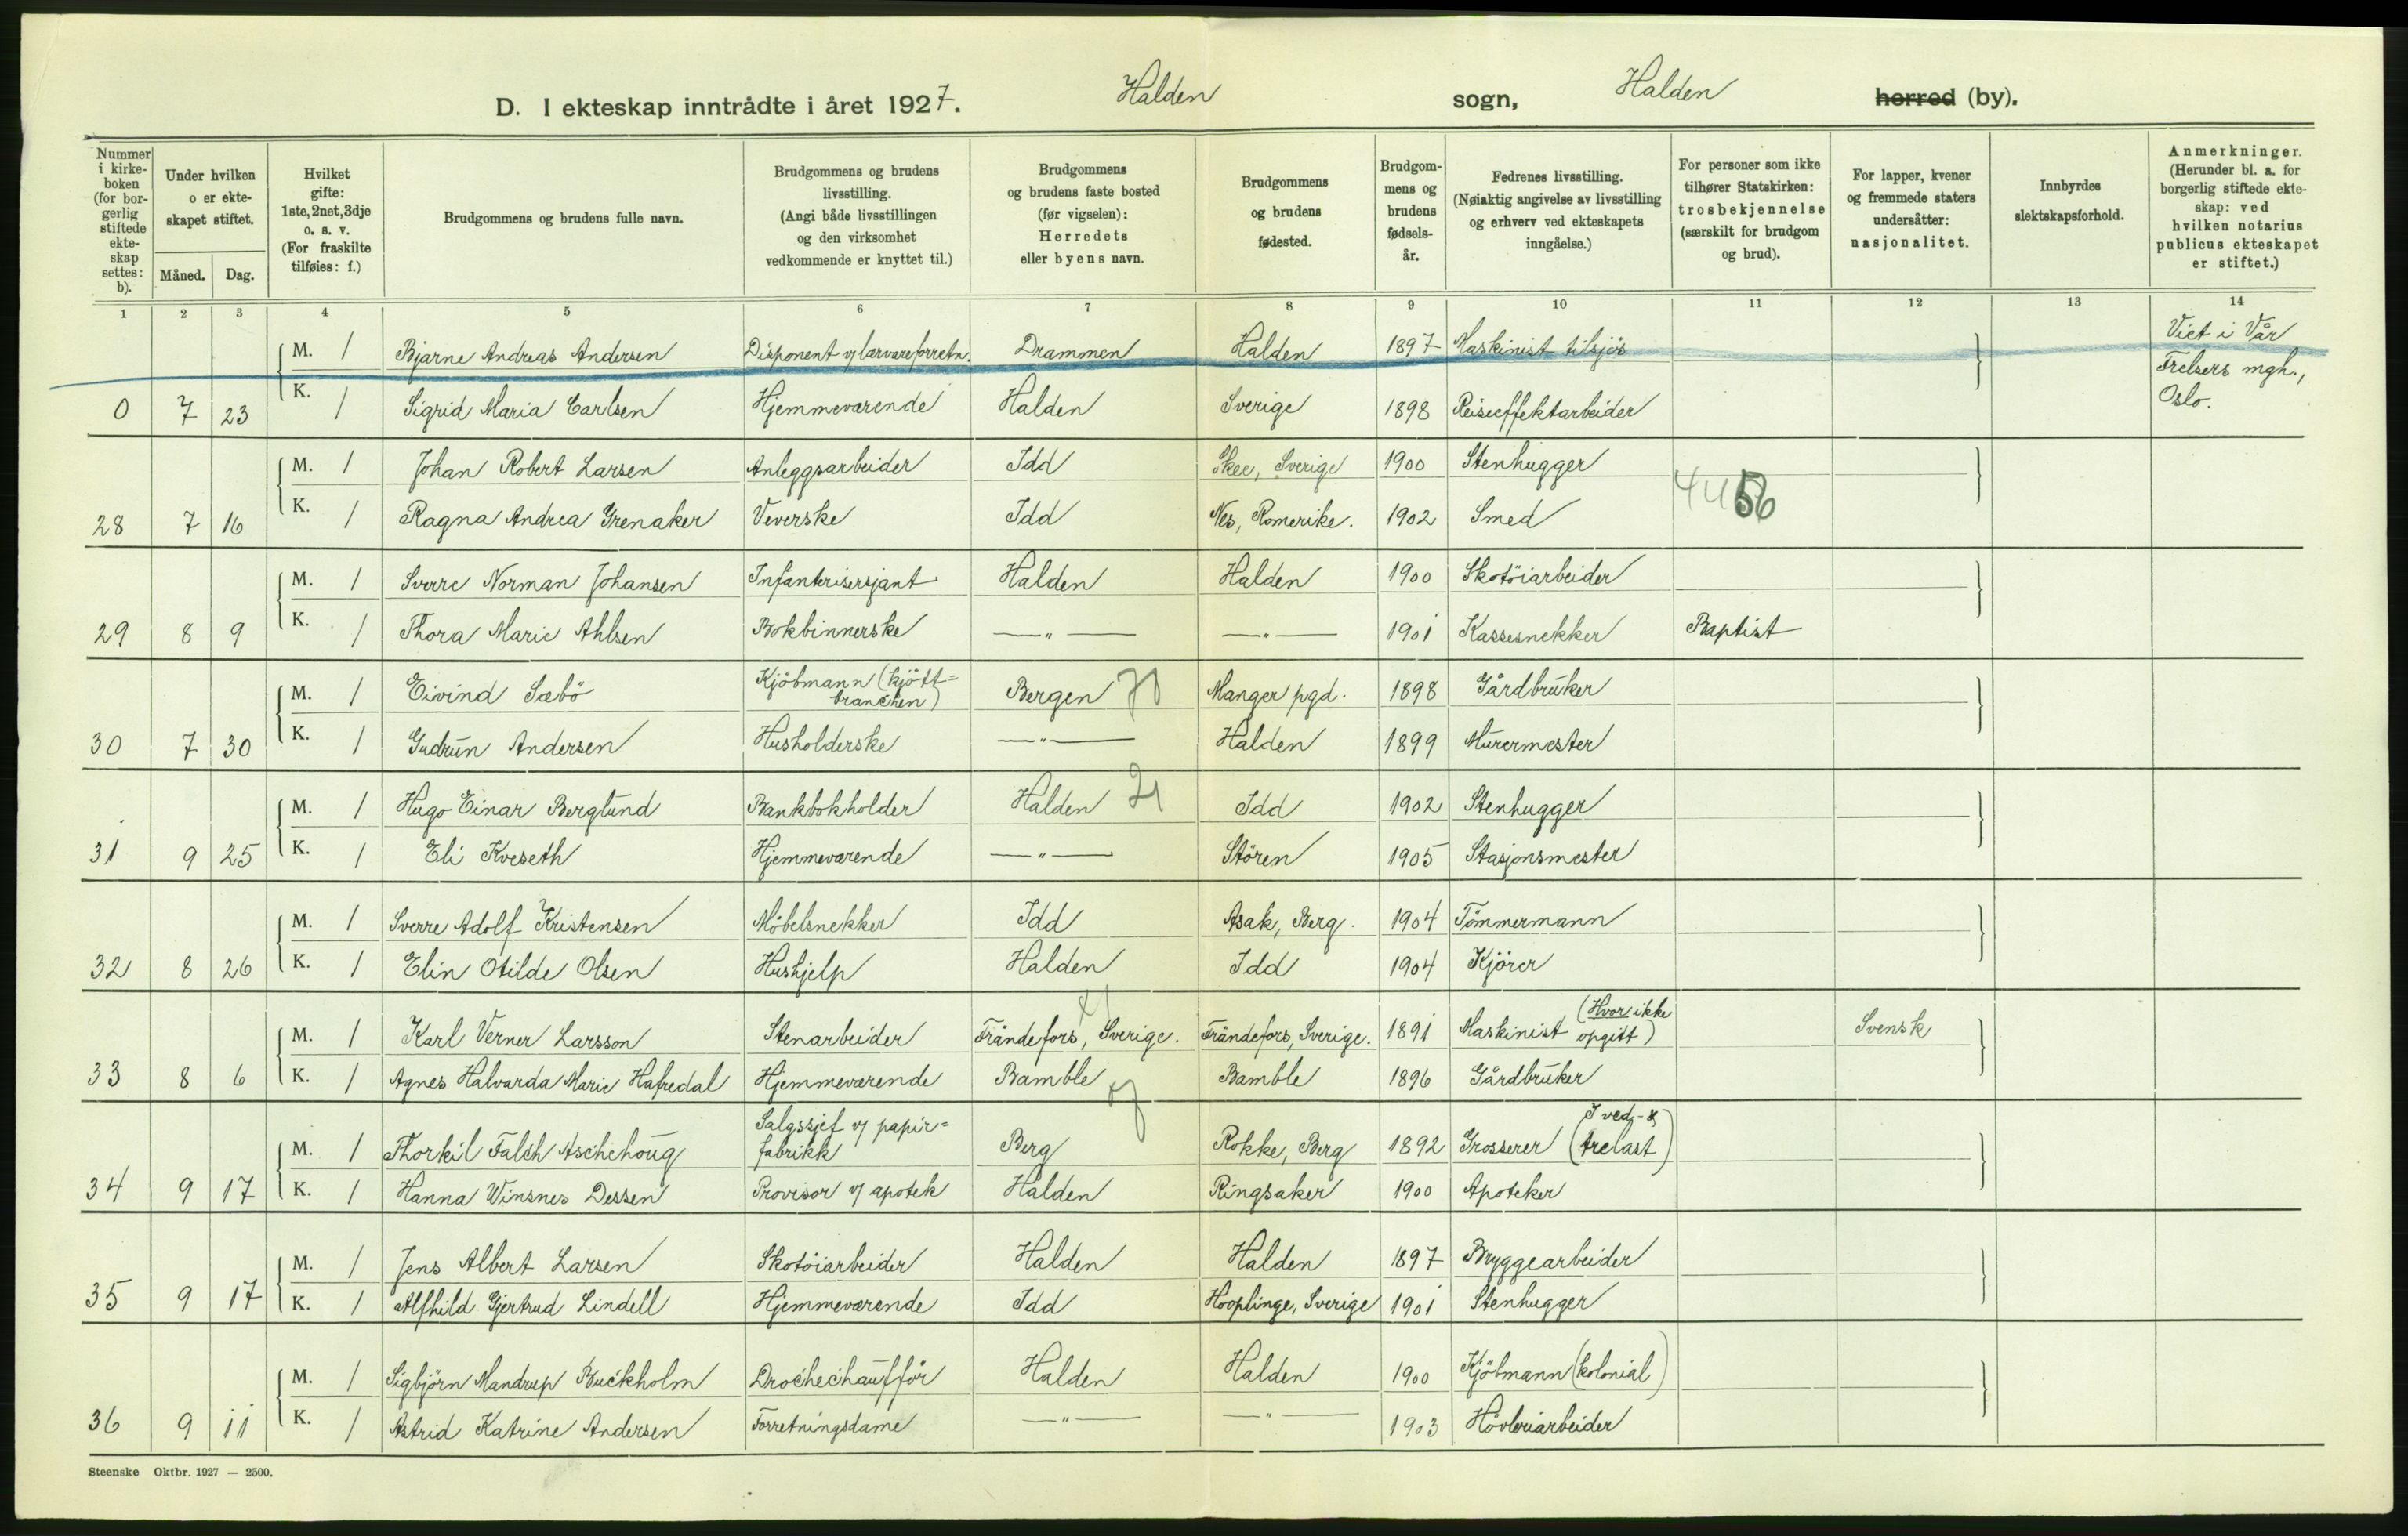 D. I ekteskap inntrådte i året 1927. Halden sogn, Halden herred (by).
Nummer i kirkeboken (for borgerlig stiftede ekteskap settes: b).
Under hvilken o er ekteskapet stiftet.
Måned. Dag.
Hvilket gifte: 1ste, 2net, 3dje o. s. v. (For fraskilte tilføies: f.)
Brudgommens og brudens fulle navn.
Brudgommens og brudens livsstilling. (Angi både livsstillingen og den virksomhet vedkommende er knyttet til.)
Brudgommens og brudens faste bosted (før vigselen): Herredets eller byens navn.
Brudgommens og brudens fødested.
Brudgommens og brudens fødselsår.
Fedrenes livsstilling. (Nøiaktig angivelse av livsstilling og erhverv ved ekteskapets inngåelse.)
For personer som ikke tilhører Statskirken: trosbekjennelse (særskilt for brudgom og brud).
For lapper, kvener og fremmede staters undersåtter: nasjonalitet.
Innbyrdes slektskapsforhold.
Anmerkninger. (Herunder bl. a. for borgerlig stiftede ekteskap: ved hvilken notarius publicus ekteskapet er stiftet.)
1 2 3 4 5 6 7 8 9 10 11 12 13 14
M. 1 Bjarne Andreas Andersen Disponent v/ lærvareforretn. Drammen Halden 1897 Maskinist tilsjös Viet i Vår
Frelsers mgh.,
0 7 23 K. 1 Sigrid Maria Carlsen Hjemmeværende Halden Sverige 1898 Reiseeffektarbeider Oslo.
M. 1 Johan Robert Larsen Anleggsarbeider Idd Skee, Sverige 1900 Stenhugger
28 7 16 K. 1 Ragna Andrea Grenaker Veverske Idd Nes, Romerike. 1902 Smed
M. 1 Sverre Norman Johansen Infanterisersjant Halden Halden 1900 Skotöiarbeider
29 8 9 K. 1 Thora Marie Ahlsen Bokbinnerske —"— —"— 1901 Kassesnekker Baptist
M. 1 Eivind Sæbö Kjöbmann (kjött=branchen) Bergen Manger pgd. 1898 Gårdbruker
30 7 30 K. 1 Gudrun Andersen Husholderske —"— Halden 1899 Murermester
M. 1 Hugo Einar Berglund Bankbokholder Halden 21 Idd 1902 Stenhugger
31 9 25 K. 1 Eli Kveseth Hjemmeværende —"— Stören 1905 Stasjonsmester
M. 1 Sverre Adolf Kristensen Möbelsnekker Idd Asak, Berg. 1904 Tömmermann
32 8 26 K. 1 Elin Otilde Olsen Hushjelp Halden Idd 1904 Kjörer
M. 1 Karl Verner Larsson Stenarbeider Frändefors, Sverige. Frändefors, Sverige. 1891 Maskinist (Hvor ikke opgitt) Svensk
33 8 6 K. 1 Agnes Halvarda Marie Hafredal Hjemmeværende Bamble Bamble 1896 Gårdbruker
M. 1 Thorkil Falch Aschehoug Salgssjef v/ papir=fabrikk Berg Rokke, Berg 1892 Grosserer (I ved- & trelast)
34 9 17 K. 1 Hanna Winsnes Dessen Provisor v/ apotek Halden Ringsaker 1900 Apoteker
M. 1 Jens Albert Larsen Skotöiarbeider Halden Halden 1897 Bryggearbeider
35 9 17 K. 1 Alfhild Gjertrud Lindell Hjemmeværende Idd Hooplinge, Sverige 1901 Stenhugger
M. 1 Sigbjörn Mandrup Buckholm Droschechaufför Halden Halden 1900 Kjöbmann (kolonial)
36 9 11 K. 1 Astrid Katrine Andersen Forretningsdame —"— —"— 1903 Hövleriarbeider
Steenske Oktbr. 1927 — 2500.